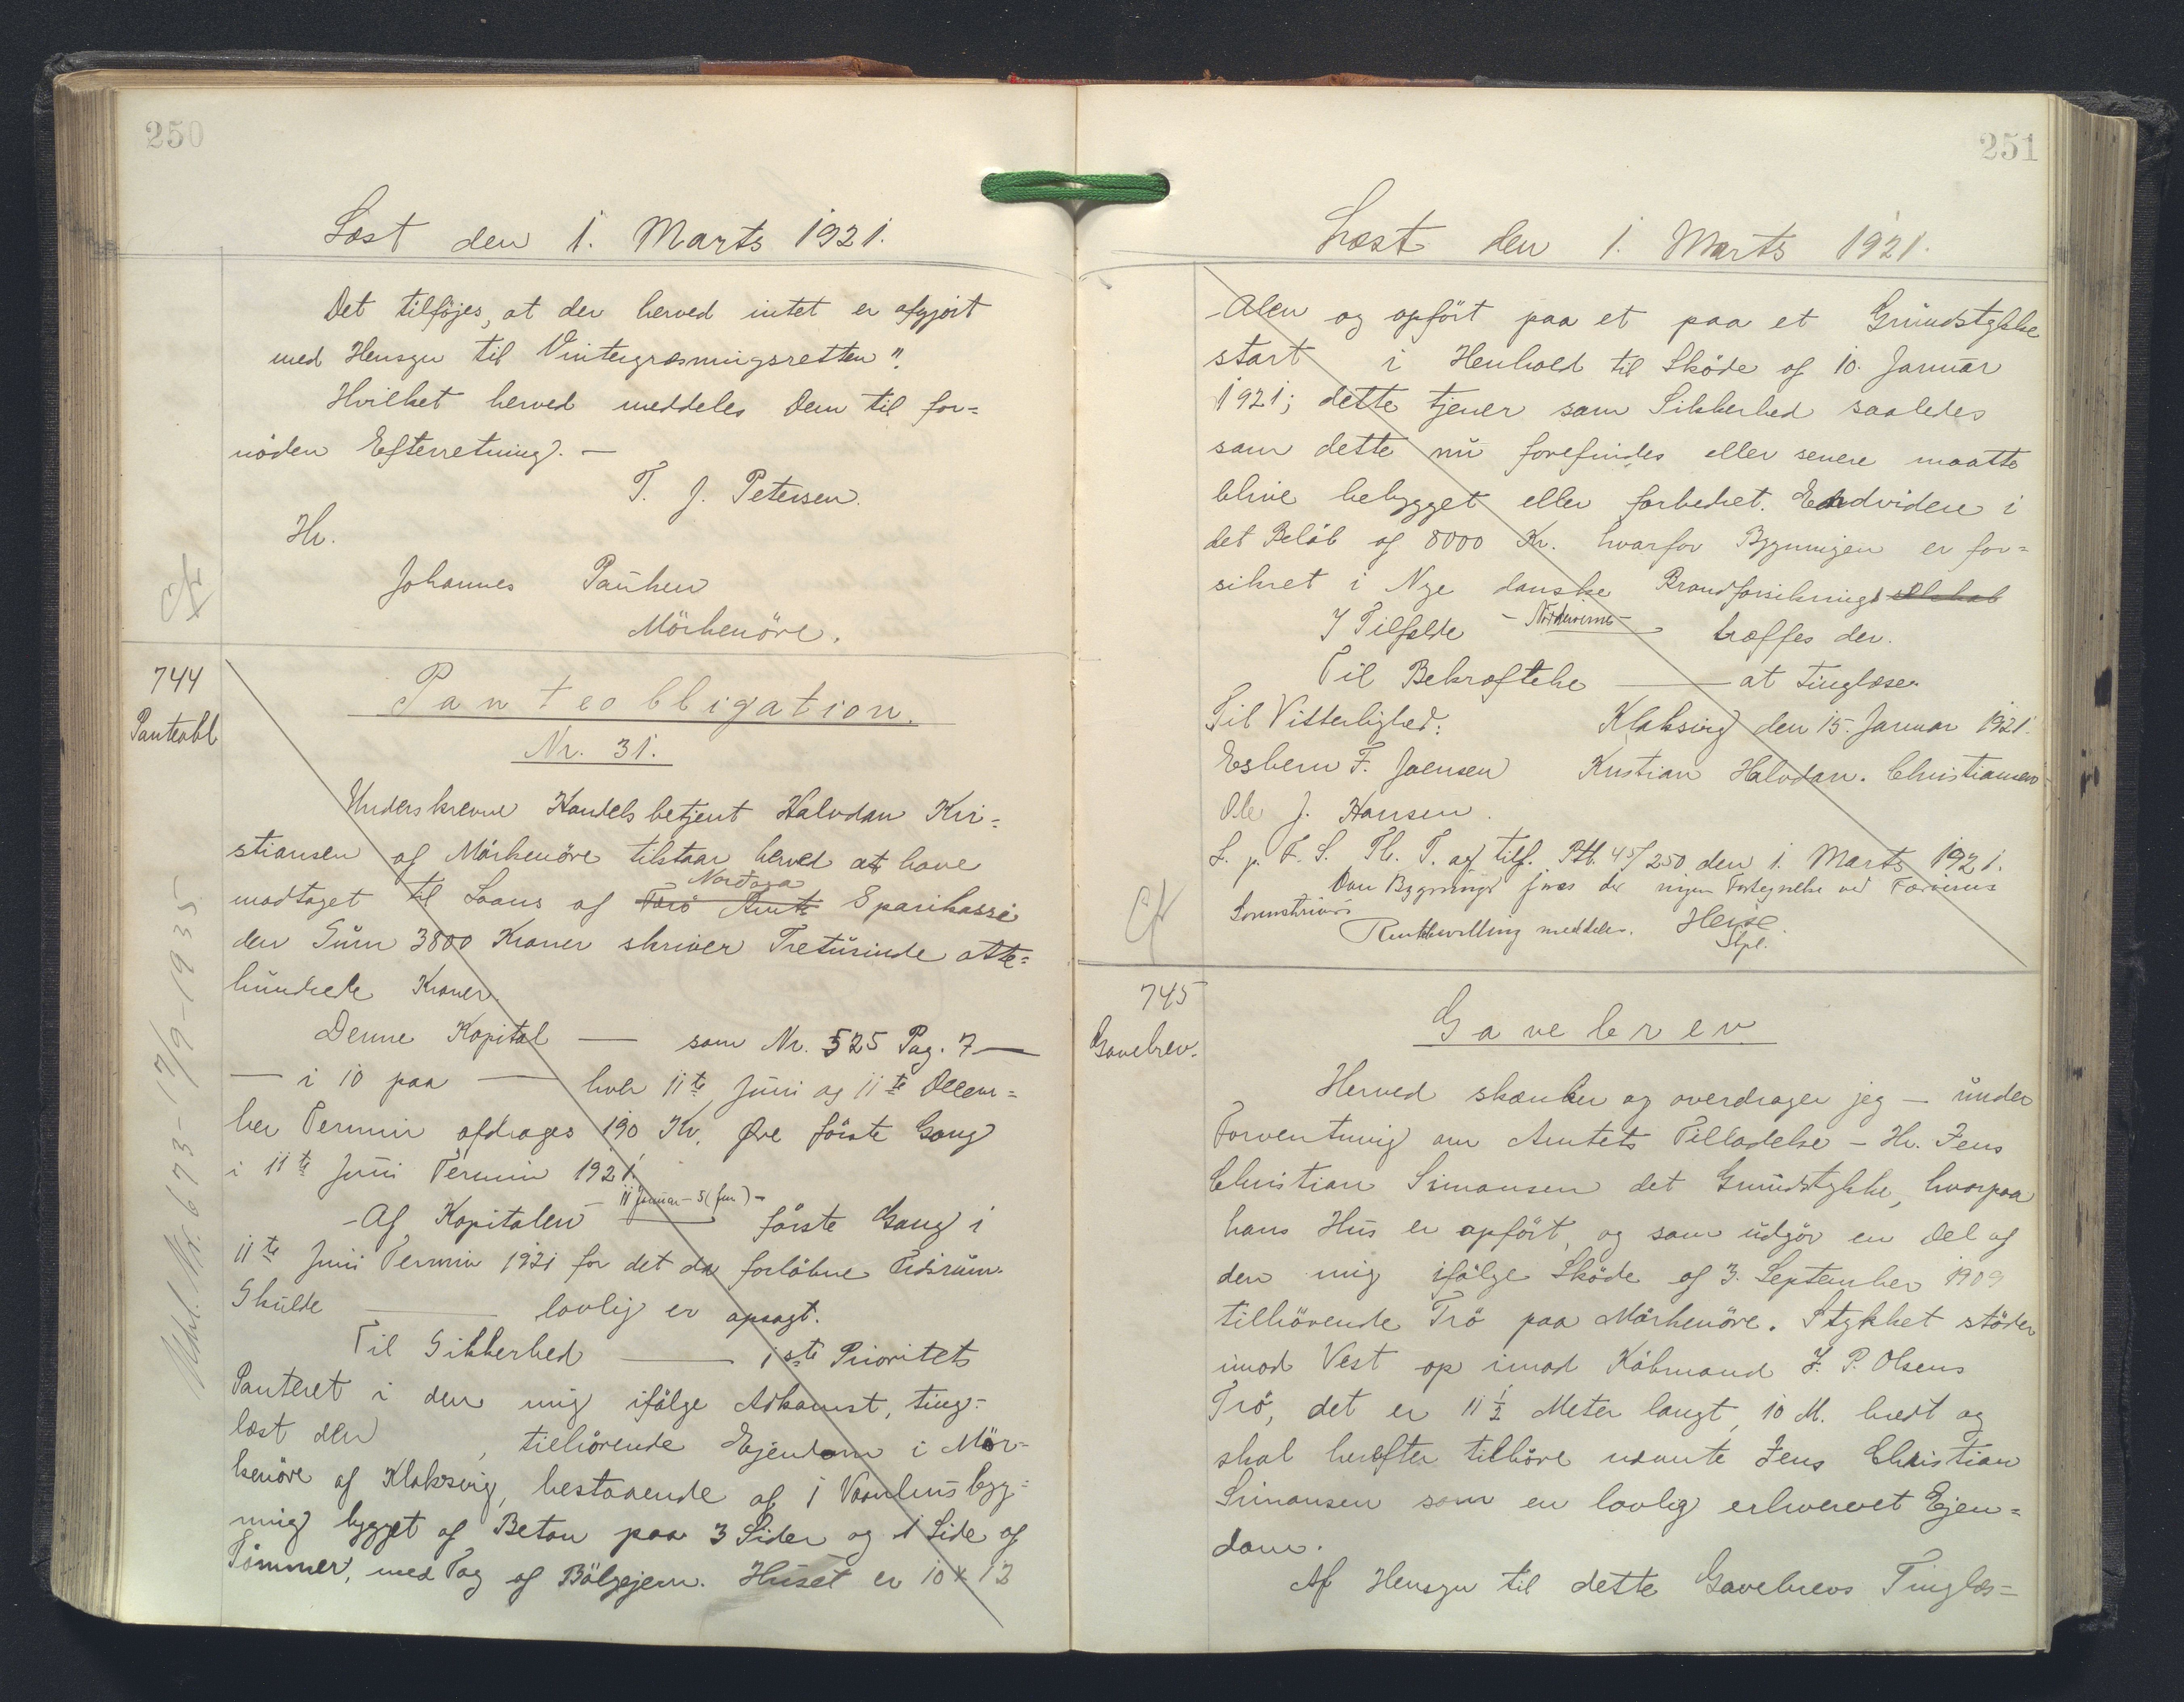 250
Læst den 1. Marts 1921.
Det tilföjes, at der herved intet er afgjort
med Hensyn til Vintergræsningsretten".
Hvilket herved meddeles Dem til for=
nöden Efterretning. —
T. J. Petersen.
Hr.
Johannes Paulsen
Mörkenöre.
Cf
744
Panteobl
Panteobligation.
Nr. 31.
Underskrevne Handelsbetjent Halvdan Kri=
stiansen af Mörkenöre tilstaar herved at have
Nordoya
modtaget til Laans af Færö Amts Sparikassi
den Sum 3800 Kroner skriver Tretusinde otte=
hundrede Kroner.
Denne Kapital — som Nr. 525 Pag. 7 —
— i 10 paa — hver 11te Juni og 11te Decem=
ber Termin afdrages 190 Kr. Øre förste Gang
i 11te Juni Termin 1921.
11 Januar - 5 (fem) -
- Af Kapitalen — förste Gang i
11te Juni Termin 1921 for det da forlöbne Tidsrum.
Skulde — lovlig er opsagt.
Til Sikkerhed — 1ste Prioritets
Panteret i den mig ifölge Adkomst, ting-
læst den , tilhörende Ejendom i Mör-
kenöre af Klaksvig, bestaaende af 1 Vaanhusbyg=
ning bygget af Beton paa 3 Sider og 1 Side af
Tömmer, med Tag af Bölgejern. Huset er 10 x 12
Nr. 673 - 17/9 - 1935
251
Læst den 1. Marts 1921.
- Alen og opfört paa et paa et Grundstykke
start i Henhold til Sköde af 10. Januar
1921; dette tjener som Sikkerhed saaledes
som dette nu forefindes eller senere maatte
blive bebygget eller forbedret. Endvidere i
det Belöb af 8000 Kr. hvorfor Bygningen er for=
sikret i Nye danske Brandforsikrings selskab
I Tilfælde — træffes der.
Til Bekræftelse — at tinglæses
Til Vitterlighed: Klaksvig den 15. Januar 1921.
Esbern F. Joensen Kristian Halvdan Christiansen
Ole J. Hansen.
L. p. F. S. Th. T. og tilf. Ptb. 45/250 den 1. Marts 1921.
Om Bygninger föres der ingen Fortegnelse ved Færöernes
Sorenskriveri
Rentebevilling meddeles. Heise.
Spl.
Cf
745
Gavebrev.
Gavebrev
Herved skænker og overdrager jeg — under
Forventning om Amtets Tilladelse — Hr. Jens
Christian Simonsen det Grundstykke, hvorpaa
hans Hus er opfört, og som udgör en Del af
den mig ifölge Sköde af 3. September 1909
tilhörende Trö paa Mörkenöre. Stykket stöder
imod Vest op imod Köbmand J. P. Olsens
Trö, det er 11 1/2 Meter langt, 10 M. bredt og
skal herefter tilhöre nævnte Jens Christian
Simonsen som en lovlig erhvervet Ejen=
dom.
Af Hensyn til dette Gavebrevs Tinglæs=